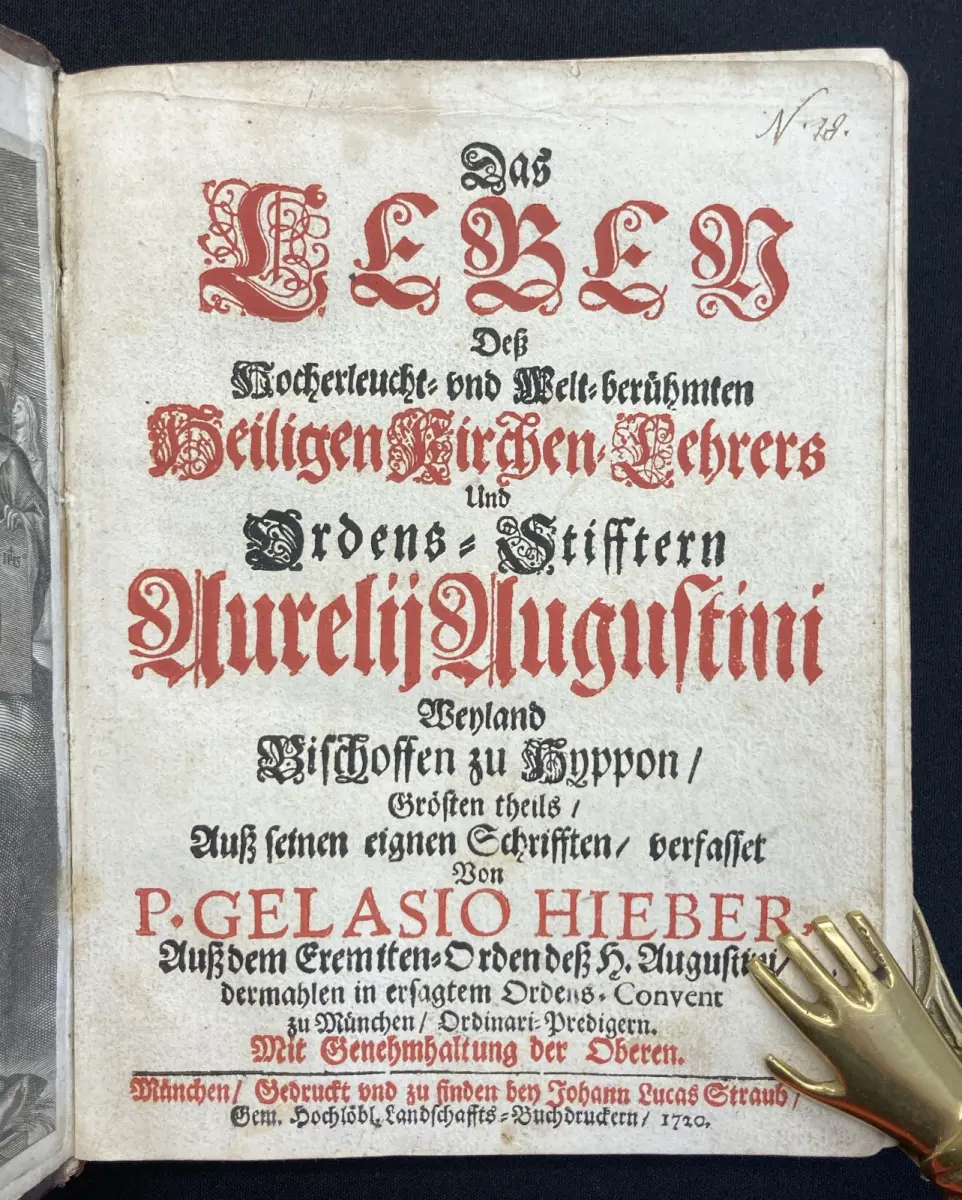 N. 18.
Das
LEBEN
Deß
Hocherleucht= vnd Welt=berühmten
Heiligen Kirchen=Lehrers
Und
Ordens=Stifftern
Aurelij Augustini
Weyland
Bischoffen zu Hyppon /
Grösten theils /
Auß seinen eignen Schrifften / verfasset
Von
P. GELASIO HIEBER,
Auß dem Eremiten=Orden deß H. Augustini /
dermahlen in ersagtem Ordens=Convent
zu München / Ordinari=Predigern.
Mit Genehmhaltung der Oberen.
München / Gedruckt vnd zu finden bey Johann Lucas Straub /
Gem. Hochlöbl. Landschaffts=Buchdruckern / 1720.